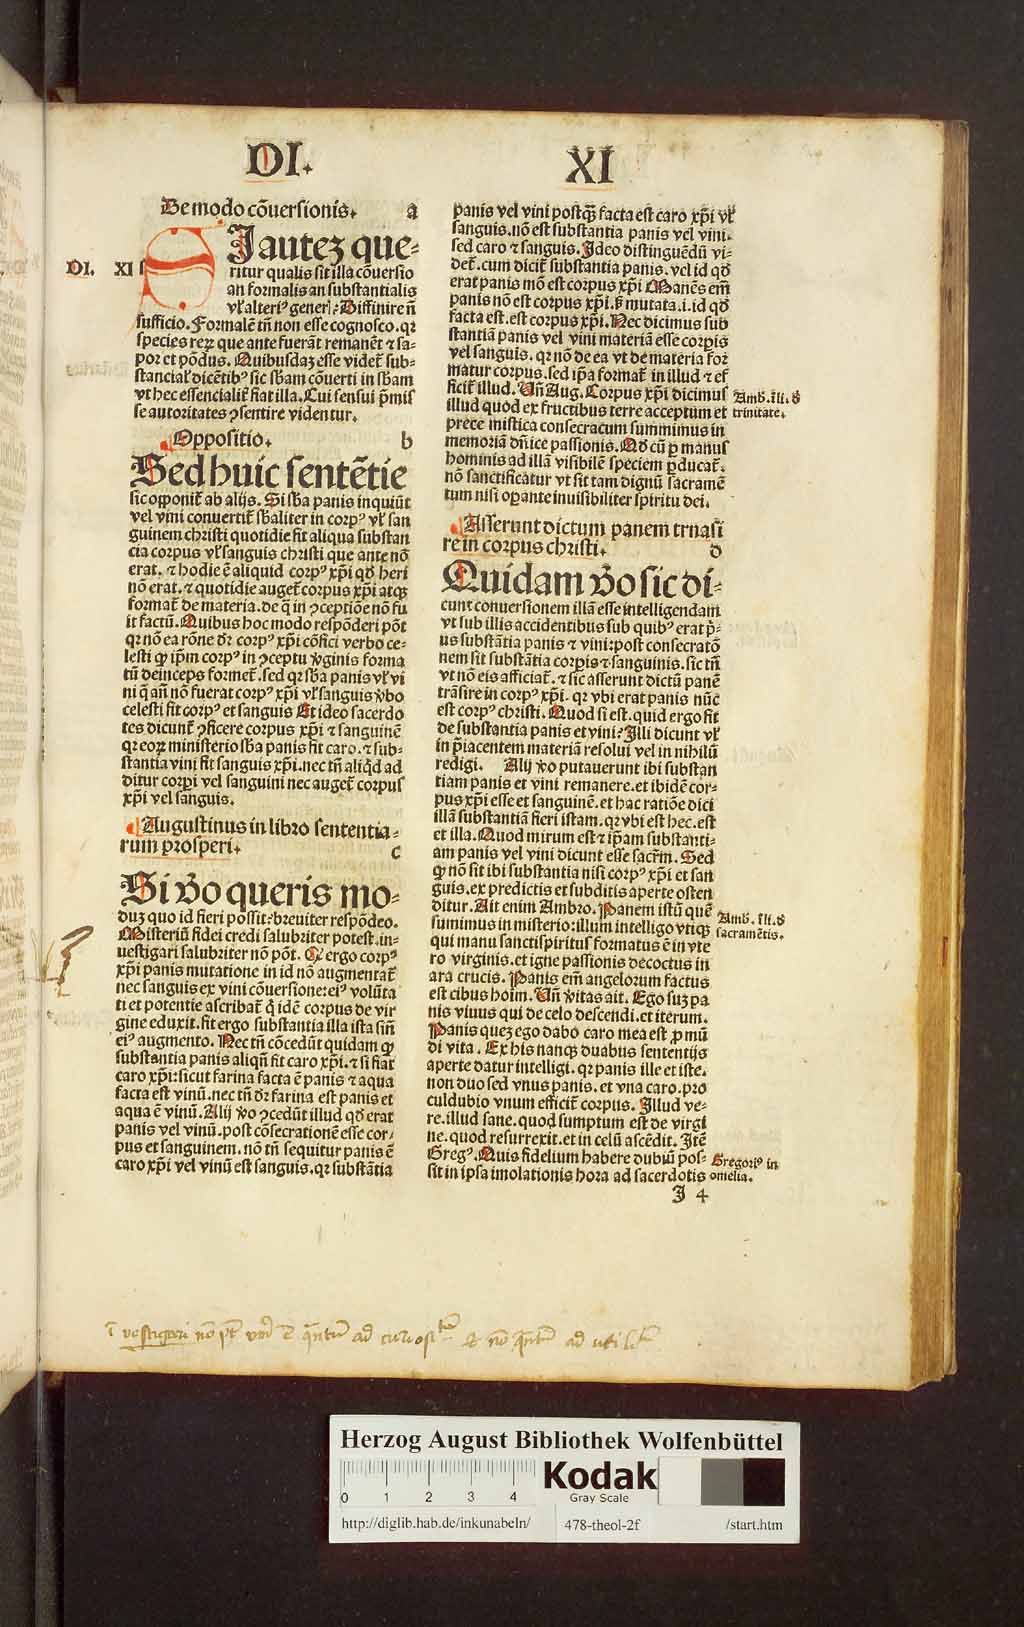 DI. XI
De modo cõuersionis. a
DI. XI
SI autez que-
ritur qualis sit illa cõuersio
an formalis an substantialis
vł alteriꝰ generꝭ: Diffinire ñ
sufficio. Formalẽ tñ non esse cognosco. qꝛ
species reꝝ que ante fuerãt remanẽt ⁊ sa-
por et põdus. Quibusdaz esse videt̃ sub-
stancialꝭ dicẽtibꝰ sic sb̃am cõuerti in sb̃am
vt hec essencialit̃ fiat illa. Cui sensui p̃mis
se autoritates ꝯsentire videntur.
Oppositio. b
Sed huic sentẽtie
sic opponit̃ ab alijs. Si sb̃a panis inquiũt
vel vini conuertit̃ sb̃aliter in corpꝰ vł san
guinem christi quotidie fit aliqua substan
cia corpus vł sanguis christi que ante nõ
erat. ⁊ hodie ẽ aliquid corpꝰ xp̃i qd̃ heri
nõ erat. ⁊ quotidie auget̃ corpus xp̃i atqꝫ
format̃ de materia. de q̃ in ꝯceptiõe nõ fu
it factũ. Quibus hoc modo respõderi põt
qꝛ nõ ea rõne dr̃ corpꝰ xp̃i cõfici verbo ce-
lesti ꝙ ip̃m corpꝰ in ꝯceptu v̾ginis forma
tũ deinceps formet̃. sed qꝛ sb̃a panis vł vi
ni q̃ añ nõ fuerat corpꝰ xp̃i vł sanguis v̾bo
celesti fit corpꝰ et sanguis Et ideo sacerdo
tes dicunt̃ ꝯficere corpus xp̃i ⁊ sanguinẽ
qꝛ eoꝝ ministerio sb̃a panis fit caro. ⁊ sub-
stantia vini fit sanguis xp̃i. nec tñ aliqͥd ad
ditur corpori vel sanguini nec auget̃ corpus
xp̃i vel sanguis.
Augustinus in libro sententia-
rum prosperi. c
Si v̾o queris mo-
duz quo id fieri possit: breuiter respõdeo.
Misteriũ fidei credi salubriter potest. in-
uestigari salubriter nõ põt. Qꝛ ergo corpꝰ
xp̃i panis mutatione in id nõ augmentat̃
nec sanguis ex vini cõuersione: eiꝰ volũta
ti et potentie ascribat̃ q̃ idẽ corpus de vir
gine eduxit. fit ergo substantia illa ista siñ
eiꝰ augmento. Nec tñ cõcedũt quidam ꝙ
substantia panis aliqñ fit caro xp̃i. ⁊ si fiat
caro xp̃i: sicut farina facta ẽ panis ⁊ aqua
facta est vinũ. nec tñ dr̃ farina est panis et
aqua ẽ vinũ. Alij v̾o ꝯcedũt illud qd̃ erat
panis vel vinũ. post cõsecrationẽ esse cor-
pus et sanguinem. nõ tñ sequitur panis ẽ
caro xp̃i vel vinũ est sanguis. qꝛ substãtia
panis vel vini postqꝫ̃ facta est caro xp̃i vł
sanguis. nõ est substantia panis vel vini.
sed caro ⁊ sanguis. Ideo distinguẽdũ vi-
det̃. cum dicit̃ substantia panis. vel id qd̃
erat panis mõ est corpus xp̃i Manẽs em̃
panis nõ est corpus xp̃i. ꝫ mutata. i. id qd̃
facta est. est corpus xp̃i. Nec dicimus sub
stantiã panis vel vini materiã esse corpis
vel sanguis. qꝛ nõ de ea vt de materia for
matur corpus. sed ip̃a format̃ in illud ⁊ ef
ficit̃ illud. Uñ Aug. Corpus xp̃i dicimus
illud quod ex fructibus terre acceptum et
prece mistica consecratum summimus in
memoriã dñice passionis. Qd̃ cũ ꝑ manus
hominis ad illã visibilẽ speciem ꝑducat̃.
nõ sanctificatur vt sit tam dignũ sacramẽ
tum nisi oꝑante inuisibiliter spiritu dei.
Amb. ĩ li. d̾
trinitate.
Asserunt dictum panem trnasi
re in corpus christi. d
Quidam v̾o sic di-
cunt conuersionem illã esse intelligendam
vt sub illis accidentibus sub quibꝰ erat p̾-
us substãtia panis ⁊ vini: post consecratõ
nem sit substãtia corpis ⁊ sanguinis. sic tñ
vt nõ eis afficiat̃. ⁊ sic asserunt dictũ panẽ
trãsire in corpꝰ xp̃i. qꝛ vbi erat panis nũc
est corpꝰ christi. Quod si est. quid ergo fit
de substantia panis et vini: Illi dicunt vł
in p̃iacentem materiã resolui vel in nihilũ
redigi. Alij v̾o putauerunt ibi substan
tiam panis et vini remanere. et ibidẽ cor-
pus xp̃i esse et sanguinẽ. et hac ratiõe dici
illã substantiã fieri istam. qꝛ vbi est hec. est
et illa. Quod mirum est ⁊ ip̃am substanti-
am panis vel vini dicunt esse sacrm̃. Sed
ꝙ nõ sit ibi substantia nisi corpꝰ xp̃i et san
guis. ex predictis et subditis aperte osten
ditur. Ait enim Ambro. Panem istũ quẽ
sumimus in misterio: illum intelligo vtiqꝫ
qui manu sanctispiritus formatus ẽ in vte
ro virginis. et igne passionis decoctus in
ara crucis. Panis em̃ angelorum factus
est cibus hoĩm. Uñ v̾itas ait. Ego suz pa
nis viuus qui de celo descendi. et iterum.
Panis quez ego dabo caro mea est ꝓ mũ
di vita. Ex his nanqꝫ duabus sententijs
aperte datur intelligi. qꝛ panis ille et iste.
non duo sed vnus panis. et vna caro. pro
culdubio vnum efficit̃ corpus. Illud ve-
re. illud sane. quod sumptum est de virgi
ne. quod resurrexit. et in celũ ascẽdit. Itẽ
Gregꝰ. Quis fidelium habere dubiũ pos-
sit in ipsa imolationis hora ad sacerdotis
Amb. ĩ li. d̾
sacramẽtis.
Gregoriꝰ in
omelia.
I 4
ĩ vestigari nõ pt̃ vm̃ ẽ q̃ntũ ad curiositẽ et nõ q̃ntũ ad utiltẽ
Herzog August Bibliothek Wolfenbüttel
0 1 2 3 4
Kodak
Gray Scale
http://diglib.hab.de/inkunabeln/ 478-theol-2f /start.htm